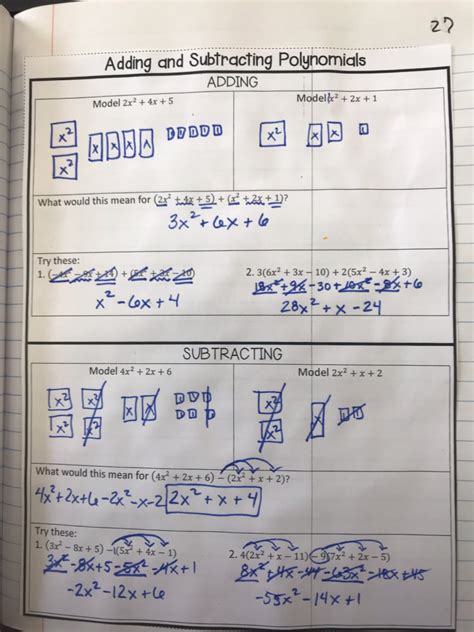 27
Adding and Subtracting Polynomials
ADDING
Model 2x² + 4x + 5
Model 1x² + 2x + 1
x² x x x x 1 1 1 1 1
x²
x² x x 1
What would this mean for (2x² + 4x + 5) + (x² + 2x + 1)?
3x² + 6x + 6
Try these:
1. (-4x² - 9x + 14) + (5x² + 3x - 10)
x² - 6x + 4
2. 3(6x² + 3x - 10) + 2(5x² - 4x + 3)
18x² + 9x - 30 + 10x² - 8x + 6
28x² + x - 24
SUBTRACTING
Model 4x² + 2x + 6
Model 2x² + x + 2
x² x² x x 1 1 1
x² x² 1 1 1
x² x 1 1
x²
What would this mean for (4x² + 2x + 6) - (2x² + x + 2)?
4x² + 2x + 6 - 2x² - x - 2 2x² + x + 4
Try these:
1. (3x² - 8x + 5) -1(5x² + 4x - 1)
3x² - 8x + 5 - 5x² - 4x + 1
-2x² - 12x + 6
2. 4(2x² + x - 11) - 9(7x² + 2x - 5)
8x² + 4x - 44 - 63x² - 18x + 45
-55x² - 14x + 1